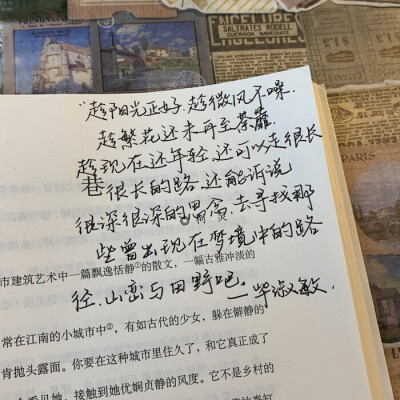 ENGELURES
SALTRATES RODELL
"趁阳光正好.趁微风不噪.
趁繁花还未开至荼蘼.
趁现在还年轻.还可以走很长
巷
很长的路.还能诉说
很深很深的思念.去寻找那
些曾出现在梦境中的路
径.山峦与田野吧。——毕淑敏.
市建筑艺术中一篇飘逸恬静①的散文，一幅古雅冲淡的
常在江南的小城市中②，有如古代的少女，躲在僻静的
肯抛头露面。你要在这种城市里住久了，和它真正成了
看见她，接触到她优娴贞静的风度。它不是乡村的
PARIS